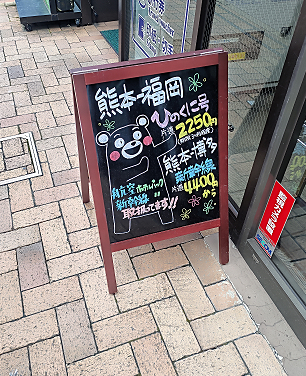 熊本-福岡
ひのくに号
片道
2250円
熊本-博多
新幹線
片道
4400円
から
航空 ホテルパック
新幹線
取扱ってます!!